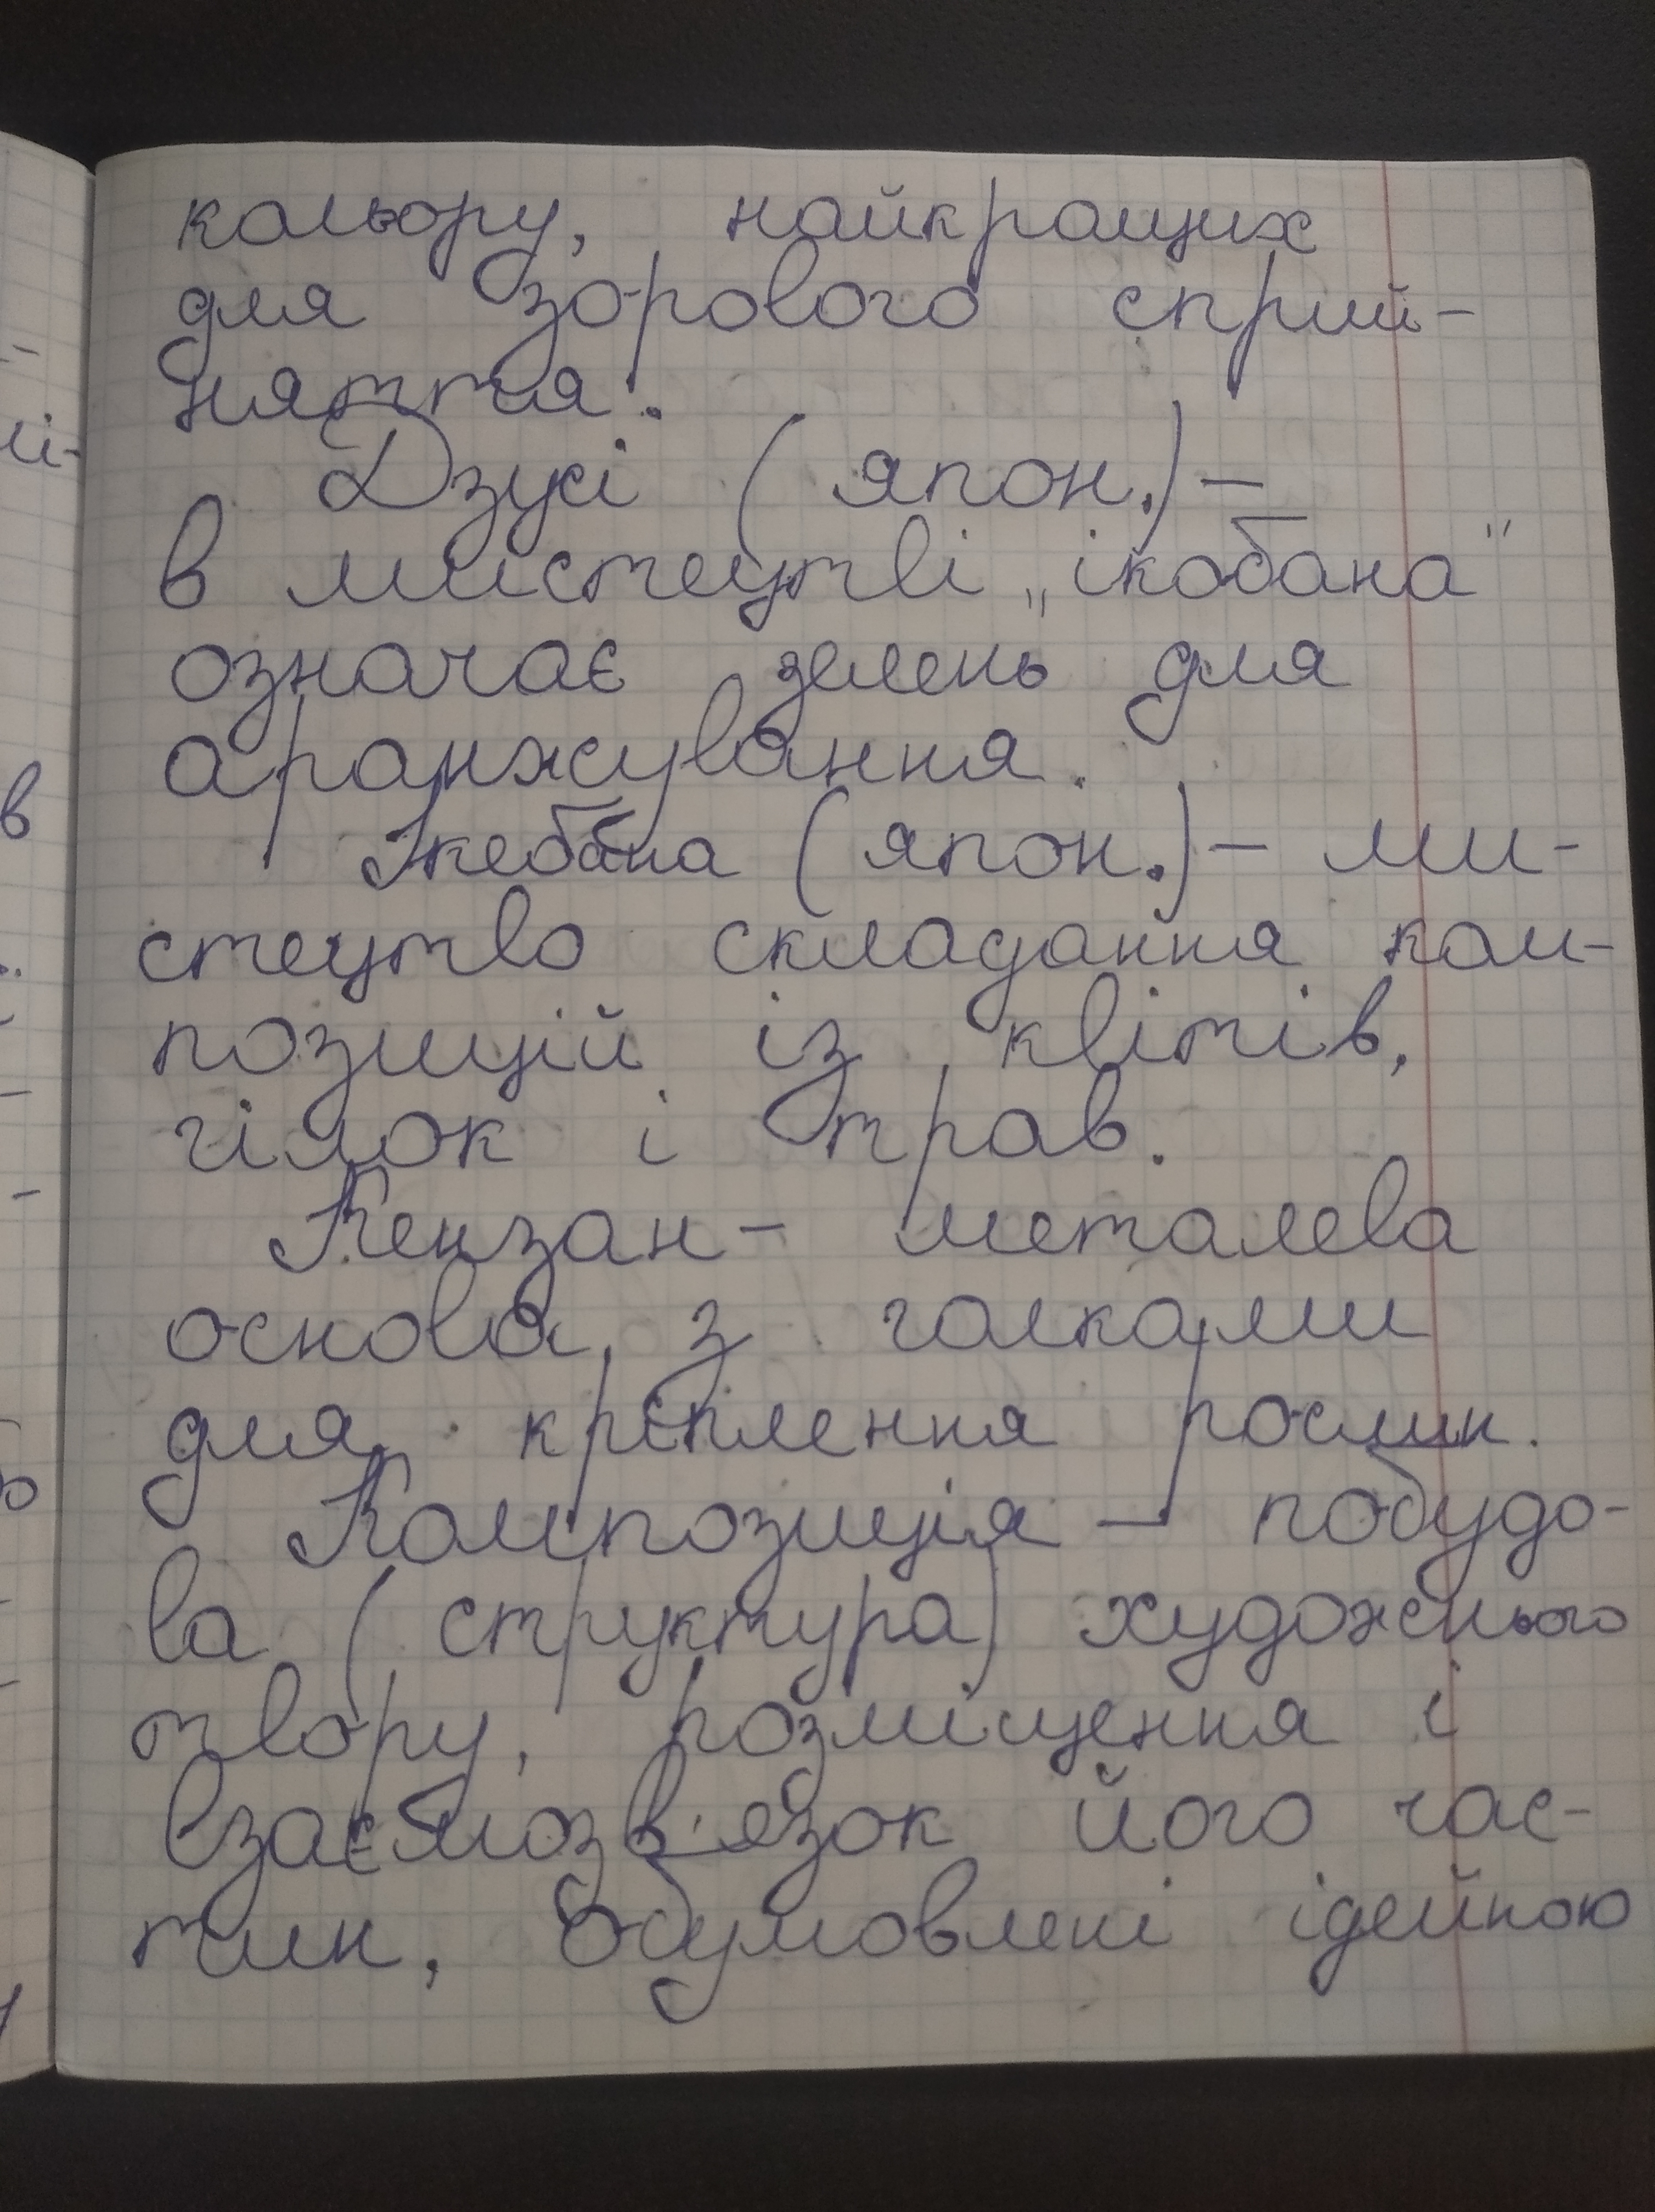 кольору, найкращих
для зорового сприй-
няття.
Дзусі (япон.) –
в мистецтві „ікобана"
означає зелень для
аранжування.
Ікебана (япон.) – ми-
стецтво складання ком-
позицій із квітів,
гілок і трав.
Кензан – металева
основа з голками
для кріплення рослин.
Композиція – побудо-
ва (структура) художнього
твору, розміщення і
взаємозв'язок його час-
тин, обумовлені ідейною